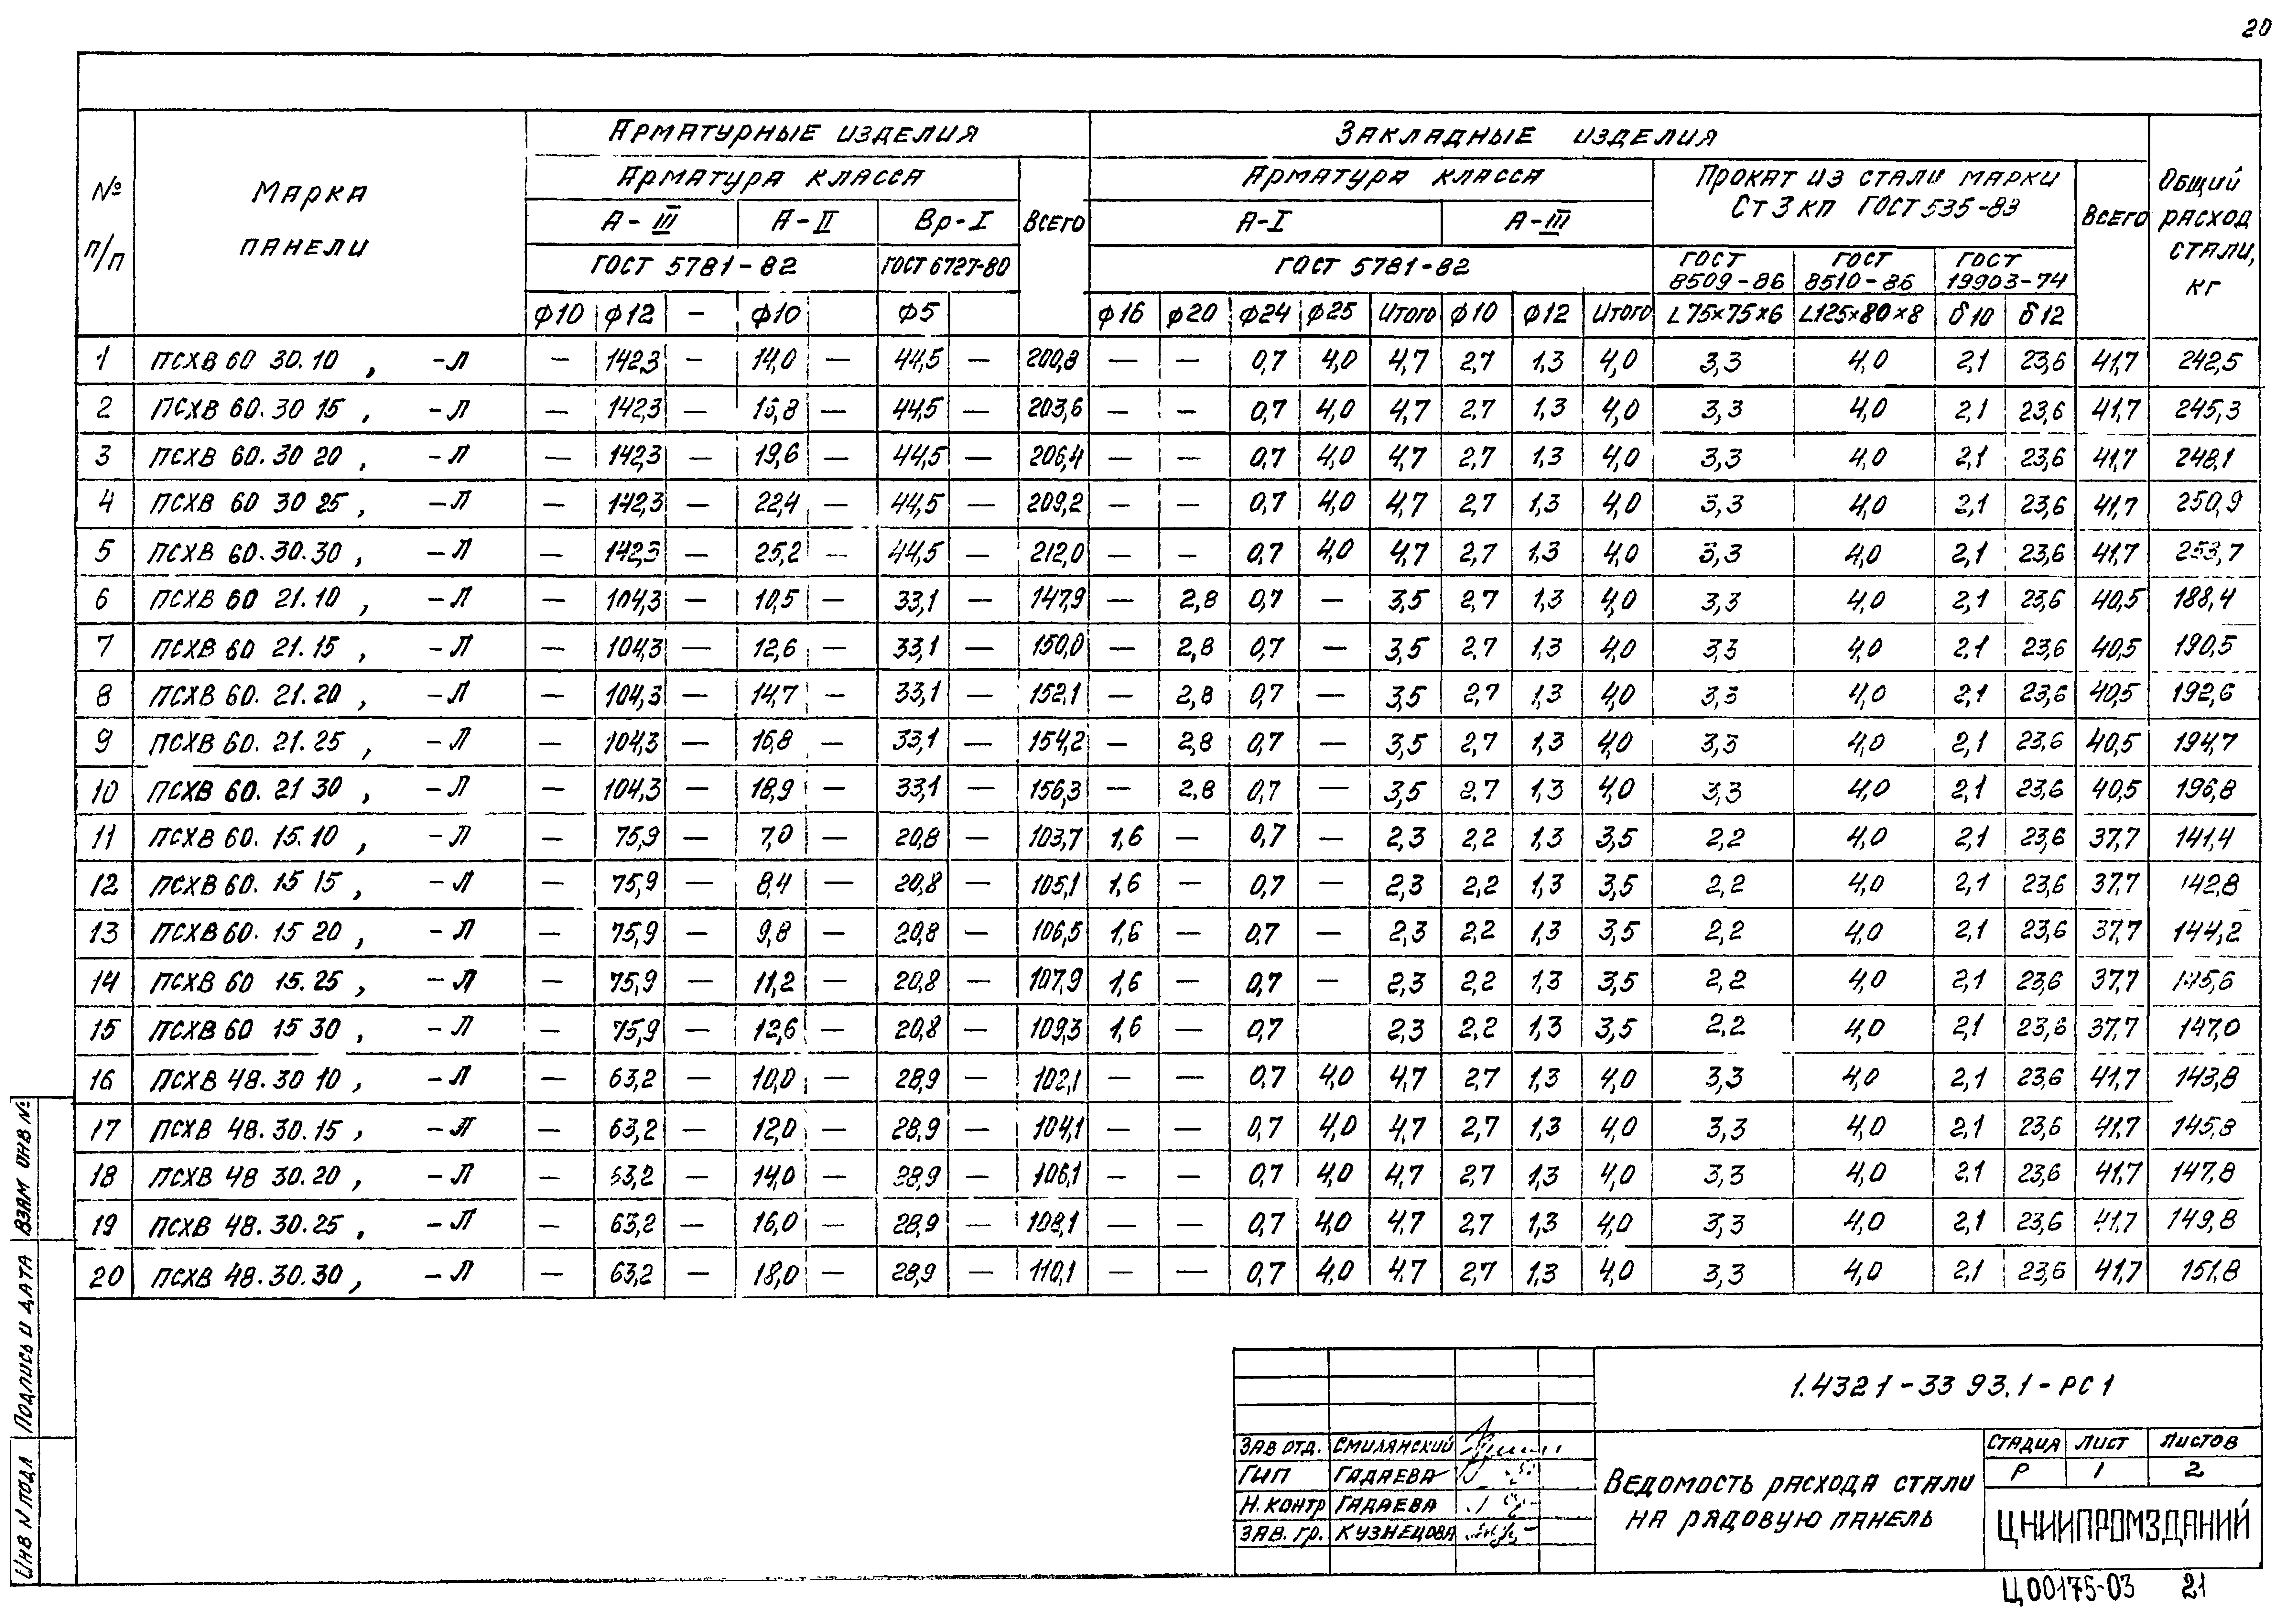 20
Арматурные изделия Закладные изделия
№ п/п Марка панели Арматура класса Всего Арматура класса Прокат из стали марки Ст3кп ГОСТ 535-83 Всего Общий расход стали, кг
А-III А-II Вр-I А-I А-III
ГОСТ 5781-82 ГОСТ 6727-80 ГОСТ 5781-82 ГОСТ 8509-86 ГОСТ 8510-86 ГОСТ 19903-74
ф10 ф12 — ф10 ф5 ф16 ф20 ф24 ф25 Итого ф10 ф12 Итого L75×75×6 L125×80×8 δ10 δ12
1 ПСХВ 60 30.10 , -Л — 142,3 — 14,0 — 44,5 — 200,8 — — 0,7 4,0 4,7 2,7 1,3 4,0 3,3 4,0 2,1 23,6 41,7 242,5
2 ПСХВ 60.30 15 , -Л — 142,3 — 16,8 — 44,5 — 203,6 — — 0,7 4,0 4,7 2,7 1,3 4,0 3,3 4,0 2,1 23,6 41,7 245,3
3 ПСХВ 60.30 20 , -Л — 142,3 — 19,6 — 44,5 — 206,4 — — 0,7 4,0 4,7 2,7 1,3 4,0 3,3 4,0 2,1 23,6 41,7 248,1
4 ПСХВ 60 30 25 , -Л — 142,3 — 22,4 — 44,5 — 209,2 — — 0,7 4,0 4,7 2,7 1,3 4,0 3,3 4,0 2,1 23,6 41,7 250,9
5 ПСХВ 60.30.30 , -Л — 142,3 — 25,2 — 44,5 — 212,0 — — 0,7 4,0 4,7 2,7 1,3 4,0 3,3 4,0 2,1 23,6 41,7 253,7
6 ПСХВ 60 21.10 , -Л — 104,3 — 10,5 — 33,1 — 147,9 — 2,8 0,7 — 3,5 2,7 1,3 4,0 3,3 4,0 2,1 23,6 40,5 188,4
7 ПСХВ 60 21.15 , -Л — 104,3 — 12,6 — 33,1 — 150,0 — 2,8 0,7 — 3,5 2,7 1,3 4,0 3,3 4,0 2,1 23,6 40,5 190,5
8 ПСХВ 60.21.20 , -Л — 104,3 — 14,7 — 33,1 — 152,1 — 2,8 0,7 — 3,5 2,7 1,3 4,0 3,3 4,0 2,1 23,6 40,5 192,6
9 ПСХВ 60.21.25 , -Л — 104,3 — 16,8 — 33,1 — 154,2 — 2,8 0,7 — 3,5 2,7 1,3 4,0 3,3 4,0 2,1 23,6 40,5 194,7
10 ПСХВ 60.21 30 , -Л — 104,3 — 18,9 — 33,1 — 156,3 — 2,8 0,7 — 3,5 2,7 1,3 4,0 3,3 4,0 2,1 23,6 40,5 196,8
11 ПСХВ 60.15.10 , -Л — 75,9 — 7,0 — 20,8 — 103,7 1,6 — 0,7 — 2,3 2,2 1,3 3,5 2,2 4,0 2,1 23,6 37,7 141,4
12 ПСХВ 60.15 15 , -Л — 75,9 — 8,4 — 20,8 — 105,1 1,6 — 0,7 — 2,3 2,2 1,3 3,5 2,2 4,0 2,1 23,6 37,7 142,8
13 ПСХВ 60.15 20 , -Л — 75,9 — 9,8 — 20,8 — 106,5 1,6 — 0,7 — 2,3 2,2 1,3 3,5 2,2 4,0 2,1 23,6 37,7 144,2
14 ПСХВ 60 15.25 , -Л — 75,9 — 11,2 — 20,8 — 107,9 1,6 — 0,7 — 2,3 2,2 1,3 3,5 2,2 4,0 2,1 23,6 37,7 145,6
15 ПСХВ 60 15 30 , -Л — 75,9 — 12,6 — 20,8 — 109,3 1,6 — 0,7 2,3 2,2 1,3 3,5 2,2 4,0 2,1 23,6 37,7 147,0
16 ПСХВ 48.30 10 , -Л — 63,2 — 10,0 — 28,9 — 102,1 — — 0,7 4,0 4,7 2,7 1,3 4,0 3,3 4,0 2,1 23,6 41,7 143,8
17 ПСХВ 48.30.15 , -Л — 63,2 — 12,0 — 28,9 — 104,1 — — 0,7 4,0 4,7 2,7 1,3 4,0 3,3 4,0 2,1 23,6 41,7 145,8
18 ПСХВ 48 30.20 , -Л — 63,2 — 14,0 — 28,9 — 106,1 — — 0,7 4,0 4,7 2,7 1,3 4,0 3,3 4,0 2,1 23,6 41,7 147,8
19 ПСХВ 48.30.25 , -Л — 63,2 — 16,0 — 28,9 — 108,1 — — 0,7 4,0 4,7 2,7 1,3 4,0 3,3 4,0 2,1 23,6 41,7 149,8
20 ПСХВ 48.30.30 , -Л — 63,2 — 18,0 — 28,9 — 110,1 — — 0,7 4,0 4,7 2,7 1,3 4,0 3,3 4,0 2,1 23,6 41,7 151,8
Инв N подл Подпись и дата Взам инв №
1.432 1-33 93.1-РС1
Зав отд. Смилянский
ГИП Гадаева
Н.контр Гадаева
Зав. гр. Кузнецова
Ведомость расхода стали
на рядовую панель
Стадия Лист Листов
Р 1 2
ЦНИИПРОМЗДАНИЙ
Ц00175-03 21